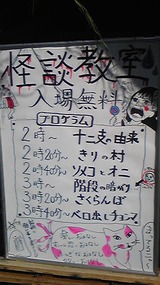 怪談教室
入場無料
プログラム
2時~ 十二支の由来
2時20分~ きりの村
2時40分~ ソメコとオニ
3時~ 階段の暗がり
3時20分~ さくらんぼ
3時40分~ ベロ出しチョンマ